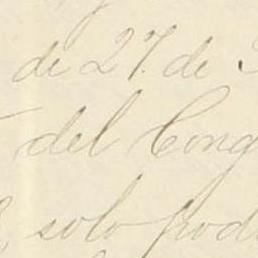 de 27. de
del Cong
solo pod